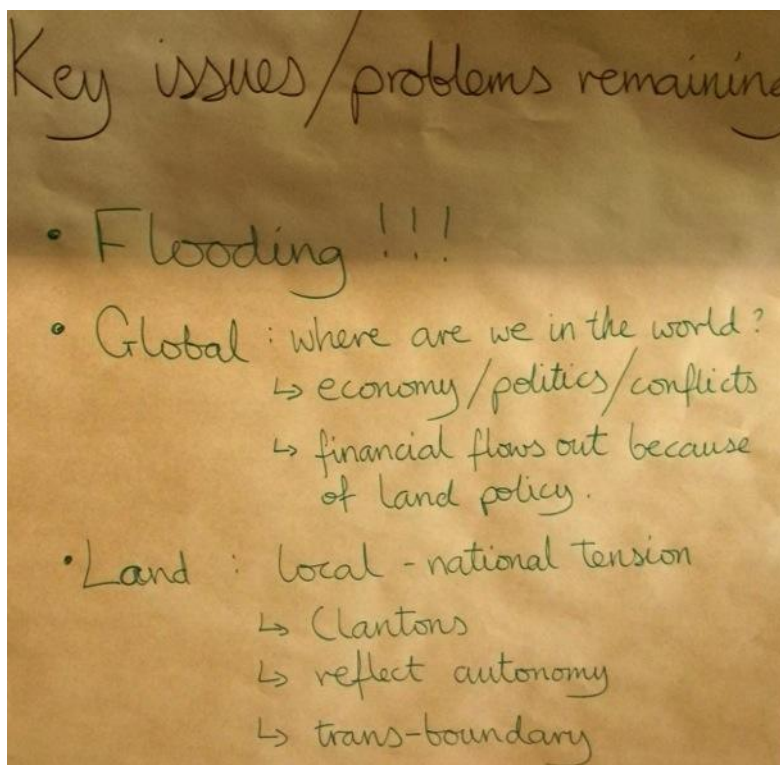 Key issues/problems remaining
• Flooding !!!
• Global : where are we in the world?
↳ economy/politics/conflicts
↳ financial flows out because
of land policy.
• Land : local - national tension
↳ Clantons
↳ reflect autonomy
↳ trans-boundary